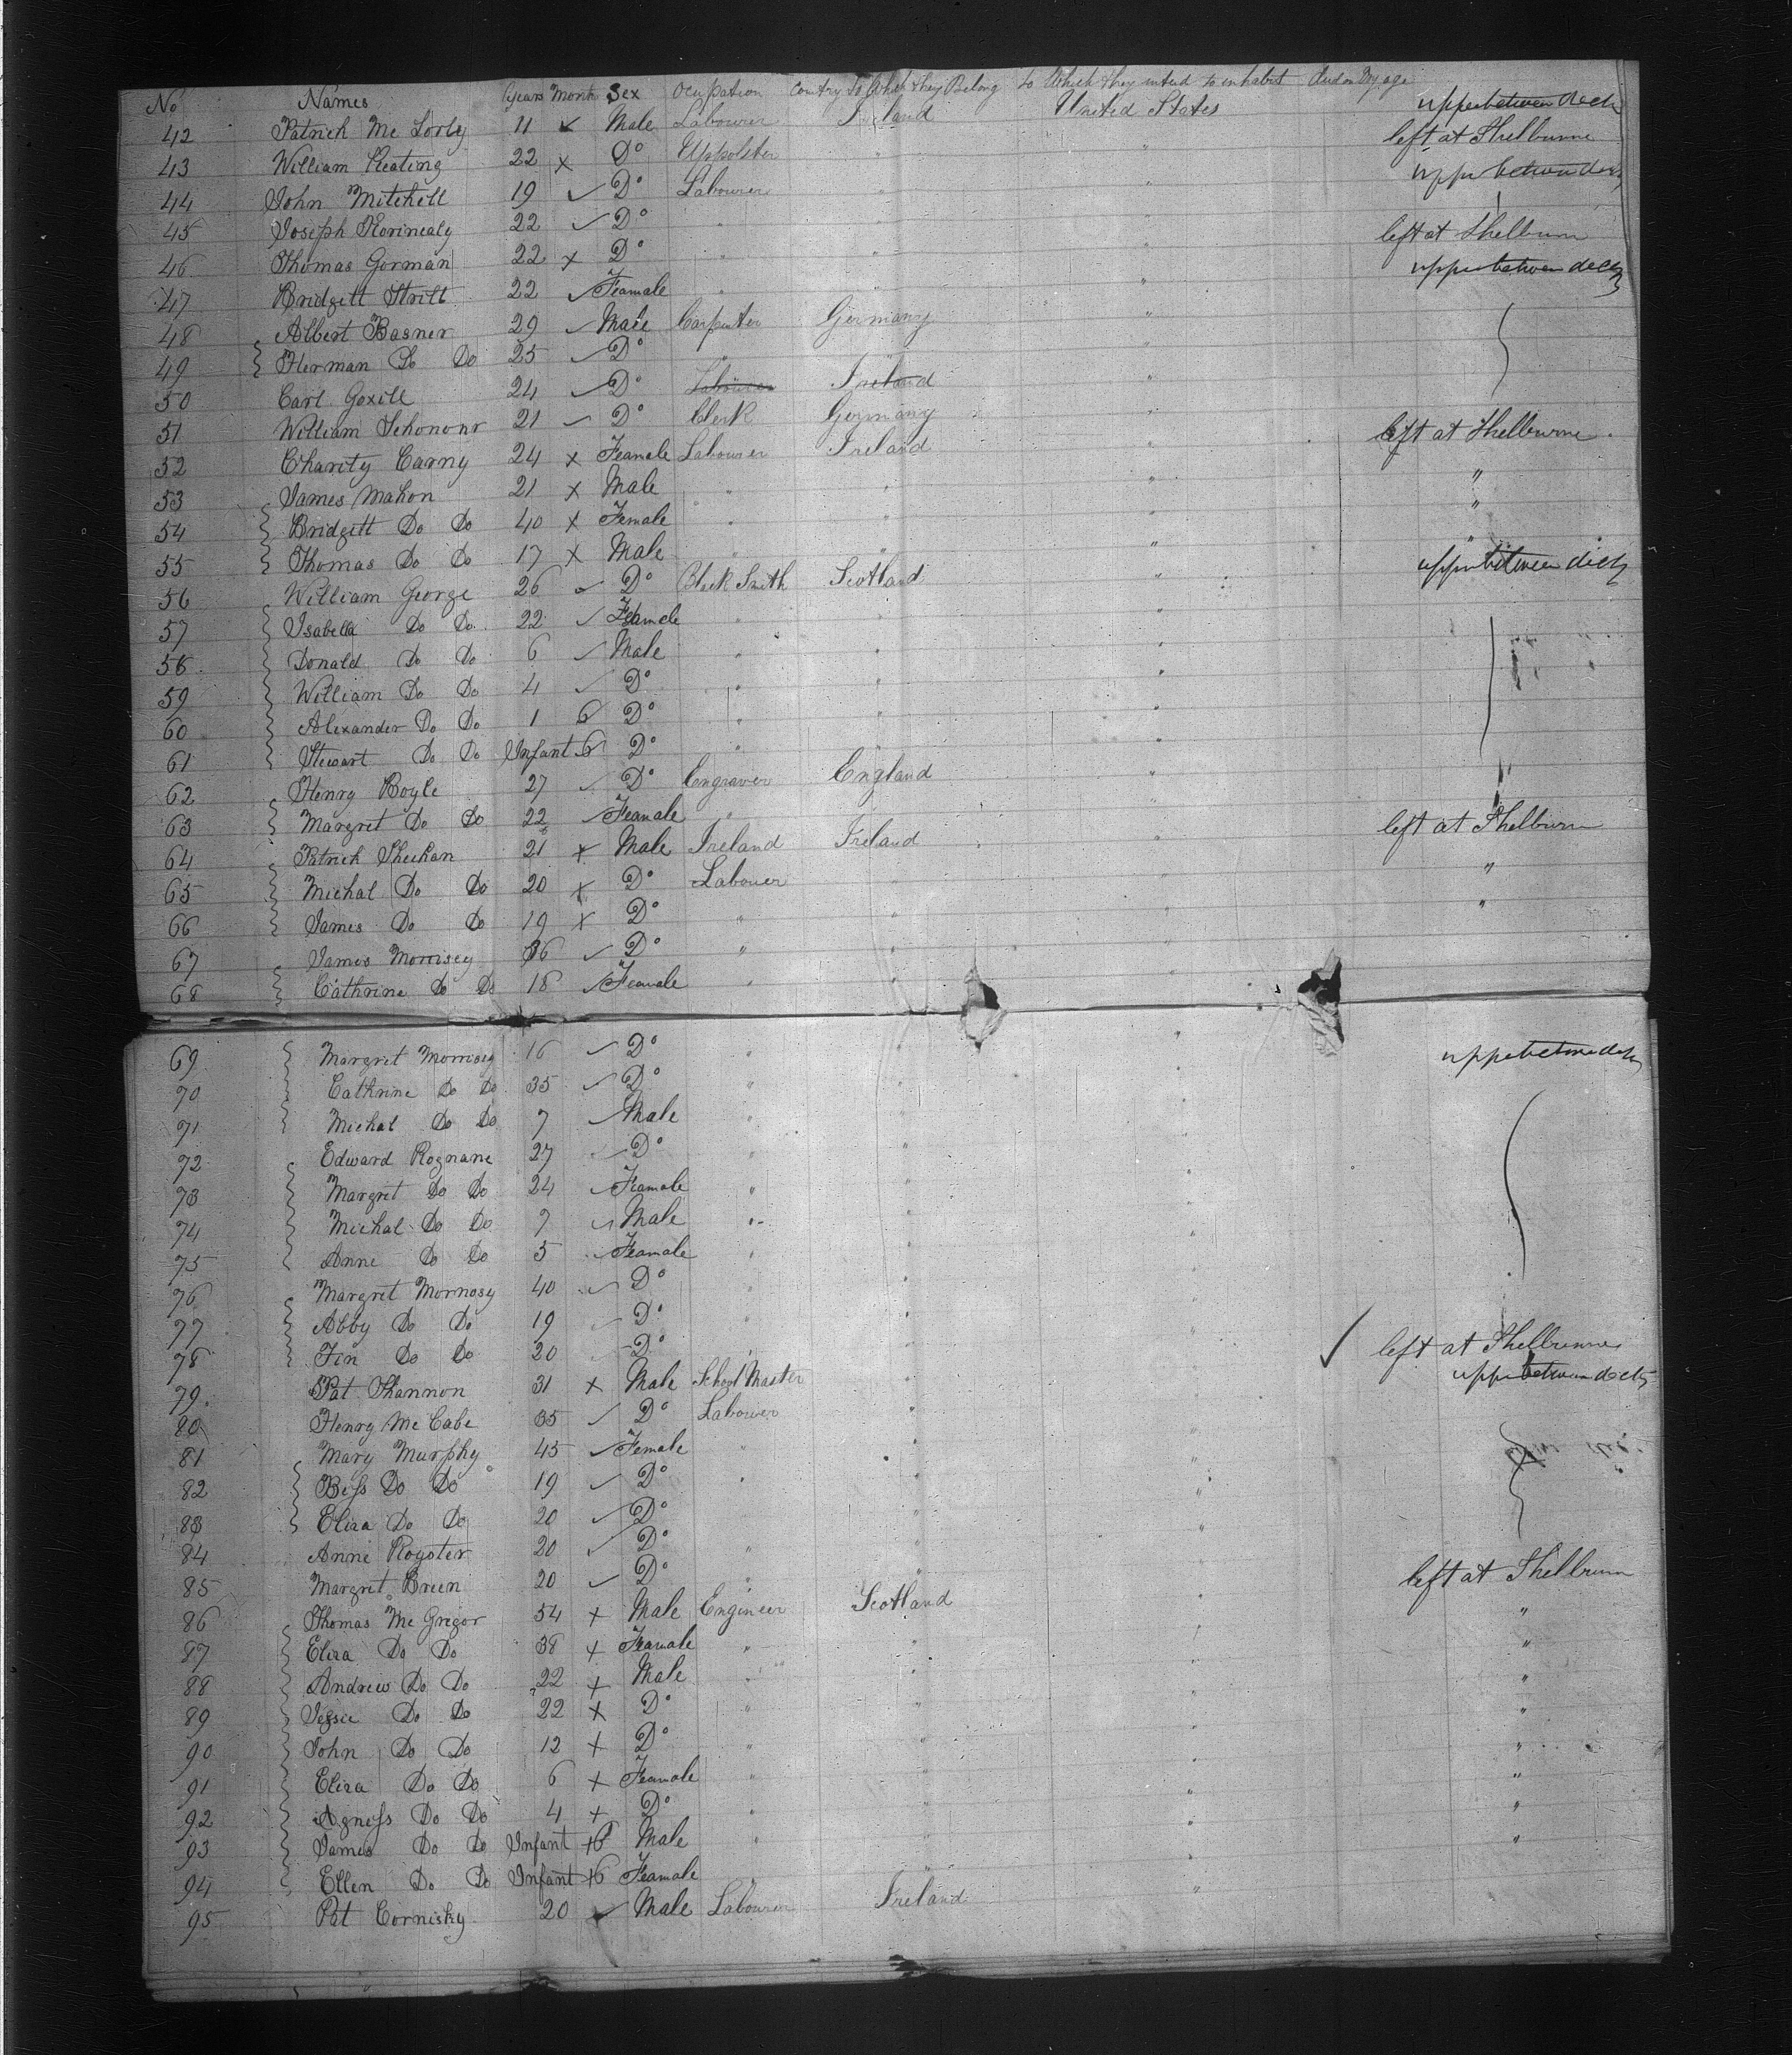 No Names Years Month Sex Ocupation Contry To Which they Belong to Which they intend to inhabit died on Voyage
42 Patrick Mc Lorly 11 Male Labourer Ireland United States upper between decks
43 William Keating 22 x Do Uppolster " " left at Shelburne
44 John Mitchell 19 ✓ Do Labourer " " upper between decks
45 Joseph 22 ✓ Do " " "
46 Thomas Gorman 22 x Do " " " left at Shelburn
47 Bridgett 22 ✓ Feamale " " " upper between decks
48 Albert Basner 29 ✓ Male Carpenter Germany "
49 Herman Do Do 25 ✓ Do " " "
50 Carl 24 ✓ Do Labourer Ireland "
51 William Schonour 21 ✓ Do Clerk Germany "
52 Charity Carny 24 x Feamele Labouser Ireland " left at Shelburne
53 James Mahon 21 x Male " " " "
54 Bridgett Do Do 40 x Female " " " "
55 Thomas Do Do 17 x Male " " " "
56 William George 26 ✓ Do Black Smith Scotland " upper between decks
57 Isabella Do Do 22 ✓ Feamele " " "
58 Donald Do Do 6 ✓ Male " " "
59 William Do Do 4 ✓ Do " " "
60 Alexander Do Do 1 6 Do " " "
61 Stewart Do Do Infant 6 Do " " "
62 Henry Boyle 27 ✓ Do Engraver England "
63 Margret Do Do 22 ✓ Feamale " " "
64 Patrick Sheehan 21 x Male Ireland Ireland " left at Shelburn
65 Michal Do Do 20 x Do Labouer " " "
66 James Do Do 19 x Do " " " "
67 James Morrisey 36 ✓ Do " " "
68 Cathrine Do Do 18 ✓ Feamale " " "
69 Margret Morrisey 16 ✓ Do " " " upper between decks
70 Cathrine Do Do 35 ✓ Do " " "
71 Michal Do Do 7 ✓ Male " " "
72 Edward Rognane 27 ✓ Do " " "
73 Margret Do Do 24 ✓ Feamale " " "
74 Michal Do Do 7 ✓ Male " " "
75 Anne Do Do 5 ✓ Feamale " " "
76 Margret Mornosy 40 ✓ Do " " "
77 Abby Do Do 19 ✓ Do " " "
78 Fin Do Do 20 ✓ Do " " "
79 Pat Shannon 31 x Male School Master " " ✓ left at Shelburne
80 Henry Mc Cabe 35 ✓ Do Labouer " " upper between decks
81 Mary Murphy 45 ✓ Female " " "
82 Bess Do Do 19 ✓ Do " " "
83 Eliza Do Do 20 ✓ Do " "
84 Anne Royster 20 ✓ Do " " "
85 Margret Breen 20 ✓ Do " " "
86 Thomas Mc Gregor 54 x Male Engineer Scotland " left at Shelburn
87 Eliza Do Do 38 x Feamale " " " "
88 Andrew Do Do 22 x Male " " " "
89 Jessie Do Do 22 x Do " " " "
90 John Do Do 12 x Do " " " "
91 Eliza Do Do 6 x Feamale " " " "
92 Agness Do Do 4 x Do " " " "
93 James Do Do Infant x6 Male " " " "
94 Ellen Do Do Infant x6 Feamale " " " "
95 Pat Cornisky 20 ✓ Male Labourer Ireland "